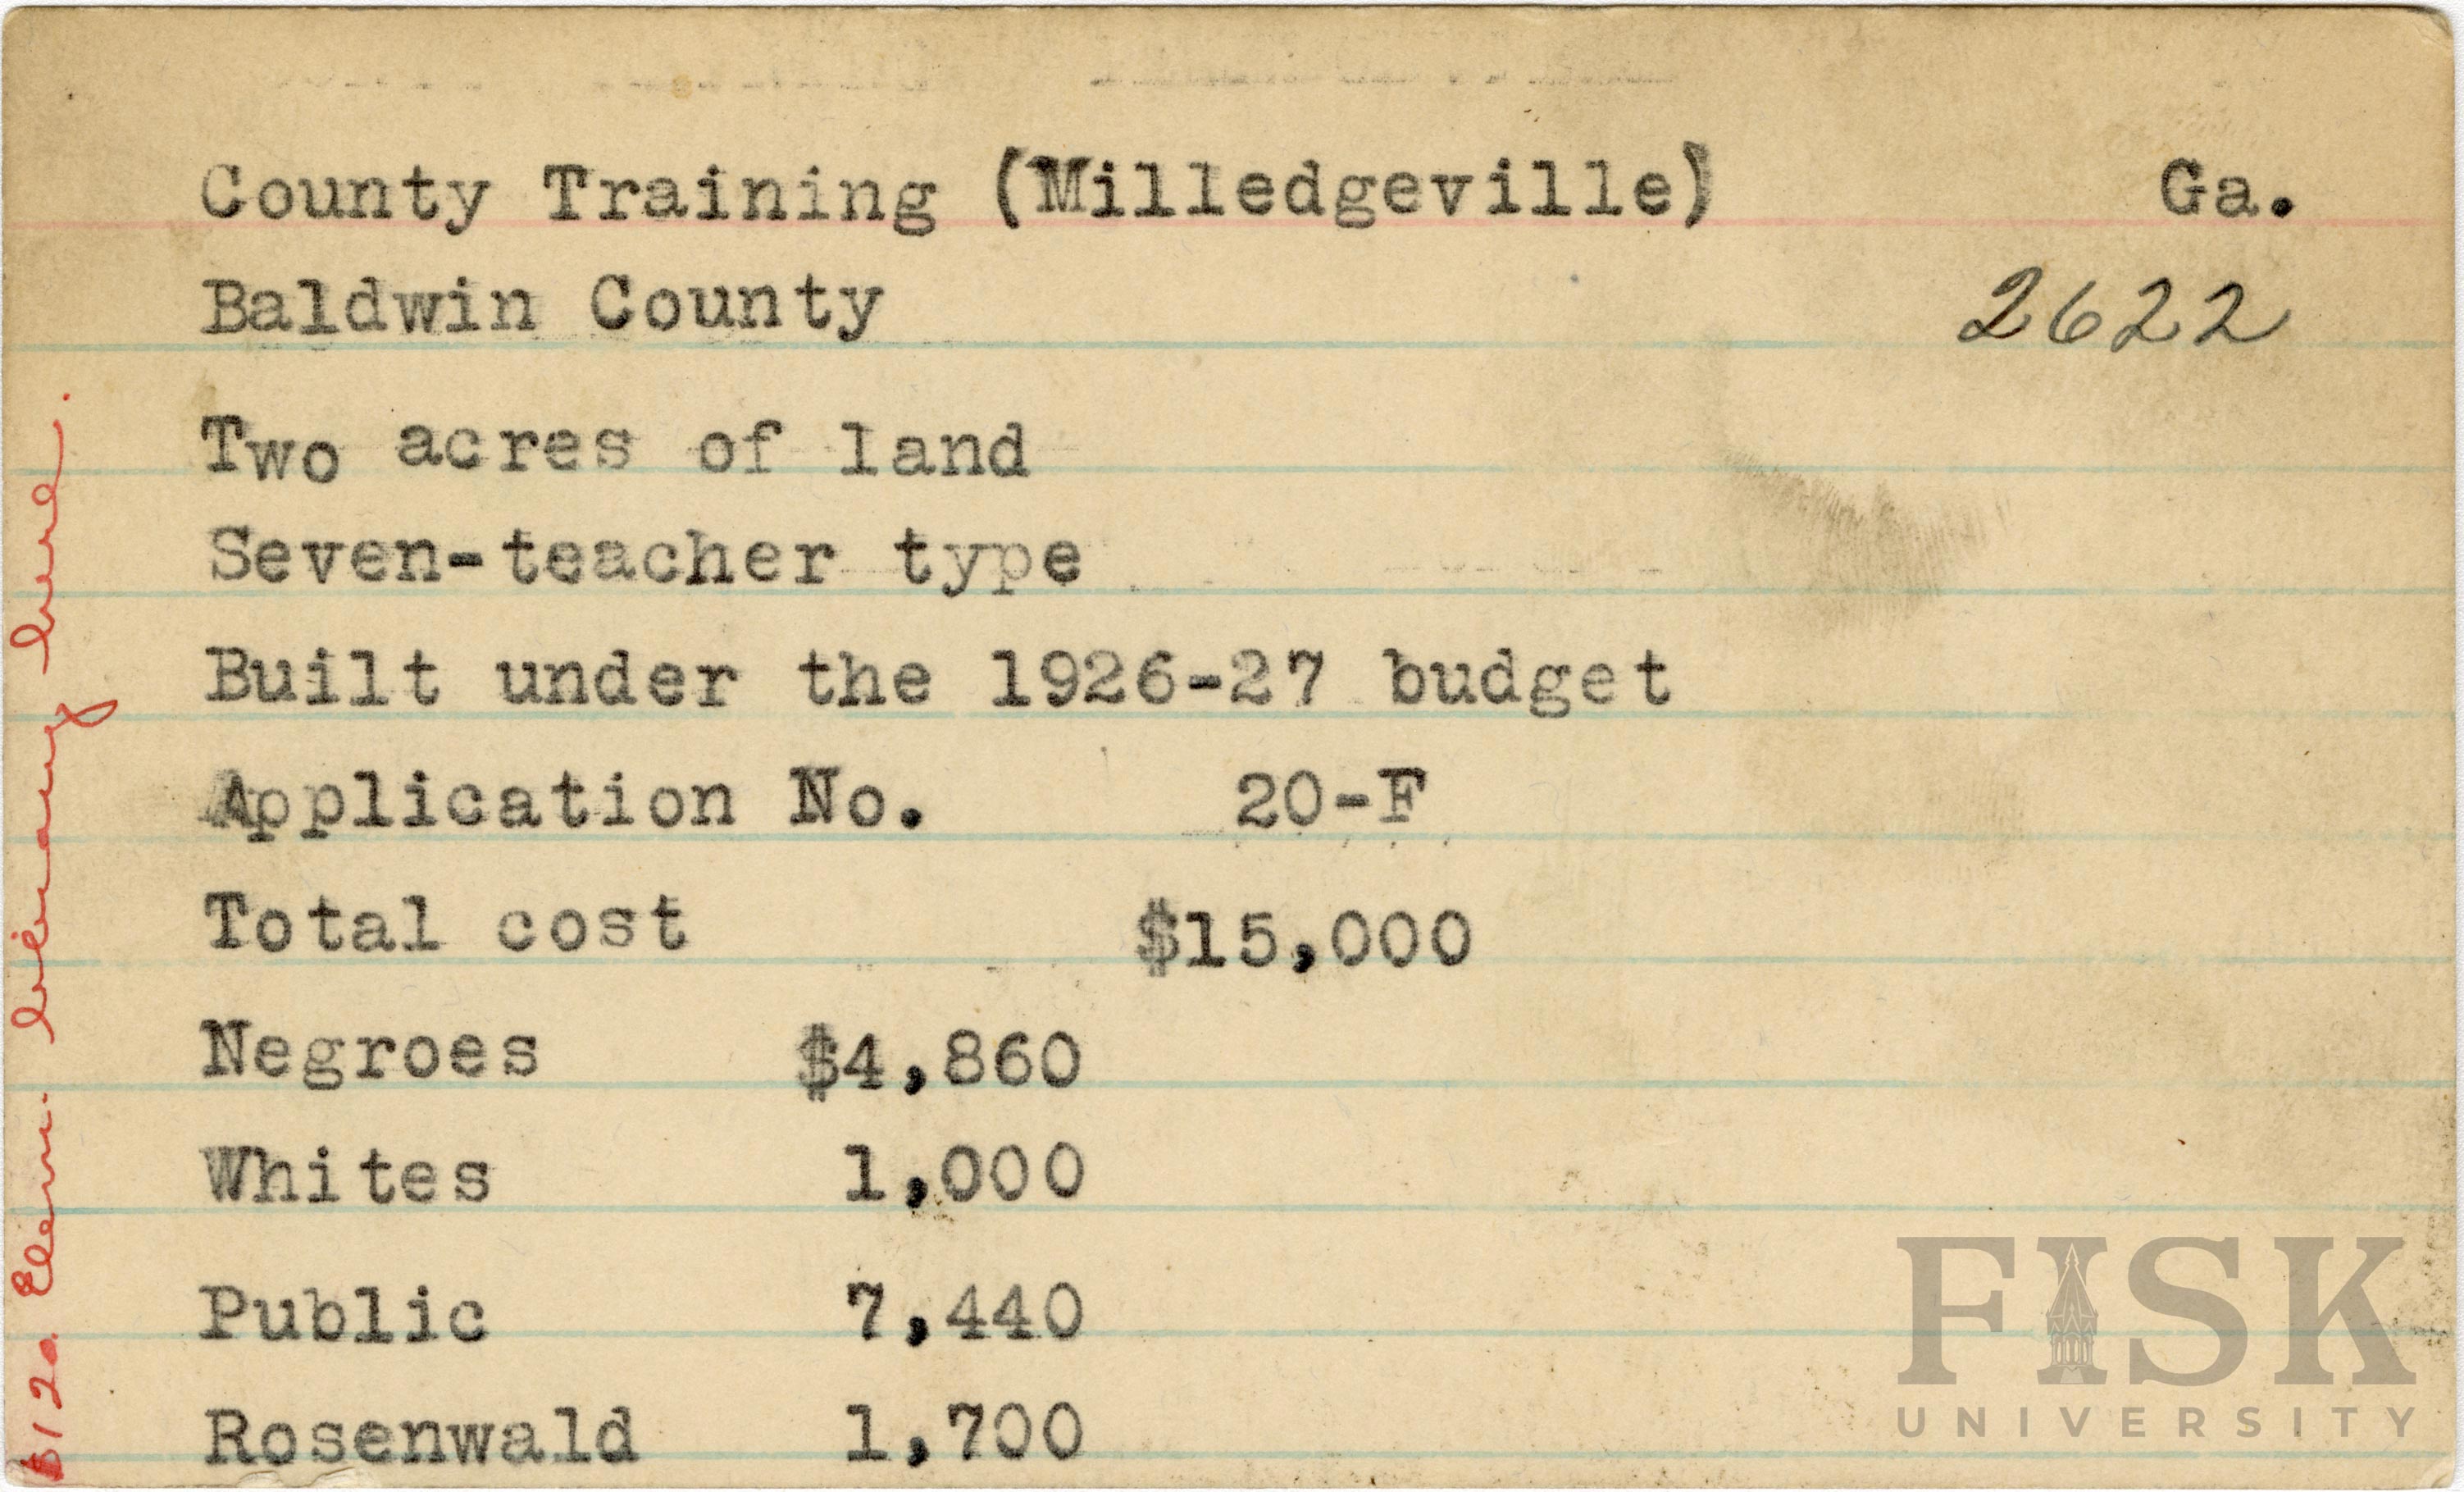 County Training (Milledgeville) Ga.
Baldwin County 2622
Two acres of land
Seven-teacher type
Built under the 1926-27 budget
Application No. 20-F
Total cost $15,000
Negroes $4,860
Whites 1,000
Public 7,440
Rosenwald 1,700
$120 Elem. library here.
FISK
UNIVERSITY